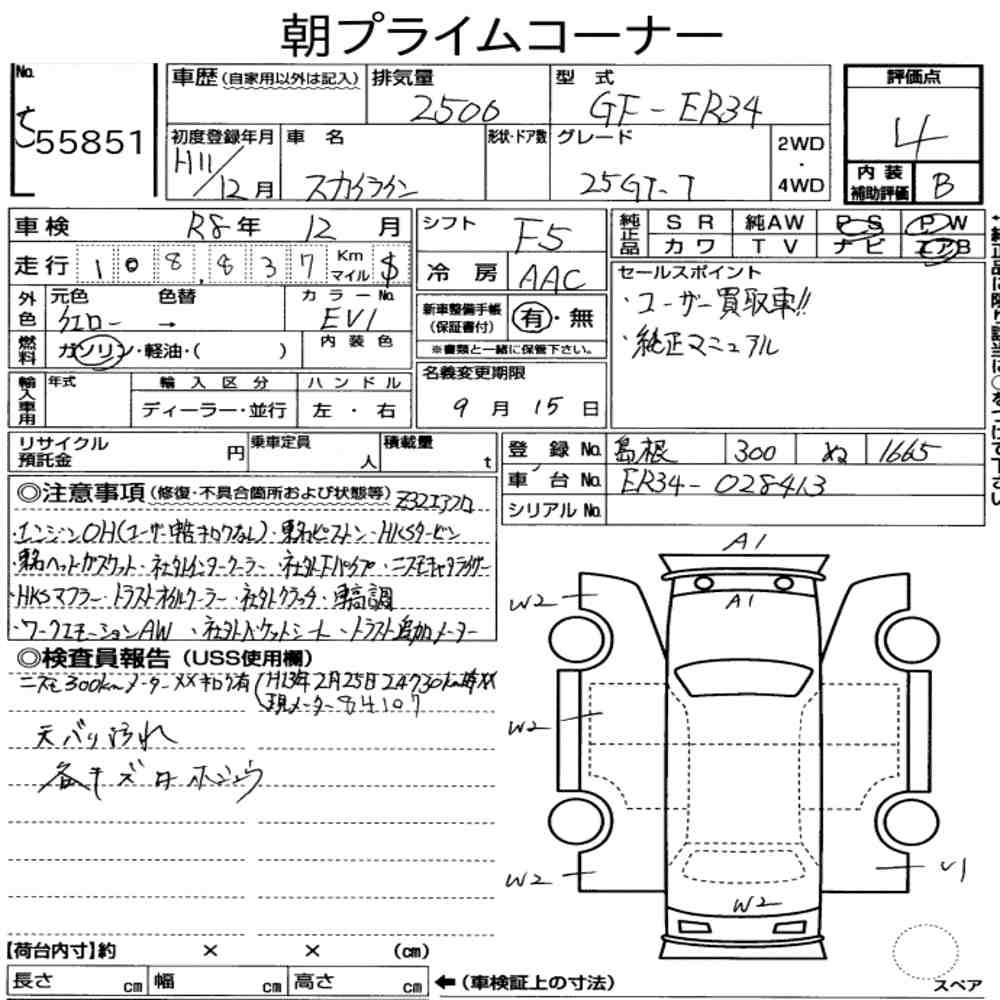 朝プライムコーナー
No.
ち55851
車歴 (自家用以外は記入)
排気量
2500
型 式
GF-ER34
評価点
4
初度登録年月
H11/12月
車 名
スカイライン
形状・ドア数
グレード
25GT-T
2WD
・
4WD
内 装
補助評価
B
車検 R8年 12月
シフト
F5
純正品
S R 純AW P S P W
カ ワ T V ナ ビ エアB
走行 108,837 Km マイル $
冷 房
AAC
セールスポイント
・ユーザー買取車!!
・純正マニュアル
外色
元色 色替
イエロー →
カラーNo
EV1
新車整備手帳
(保証書付)
有・無
※書類と一緒に保管下さい。
燃料
ガソリン・軽油・( )
内 装 色
輸入車用
年式
輸 入 区 分
ハ ン ド ル
ディーラー・並行
左 ・ 右
名義変更期限
9 月 15 日
リサイクル
預託金
円
乗車定員
人
積載量
t
登 録 No. 島根 300 ぬ 1665
車 台 No. ER34-028413
シリアル No.
◎注意事項 (修復・不具合箇所および状態等) Z32エアフロ
・エンジンOH(ユーザー申告キロクなし)・東名ピストン・HKSタービン
・東名ヘッドガスケット・社外インタークーラー・社外Fパイプ・ニスモキャタライザー
・HKSマフラー・トラストオイルクーラー・社外クラッチ・車高調
・ワークエモーションAW ・社外バケットシート・トラスト追加メーター
◎検査員報告 (USS使用欄)
ニスモ300kmメーター××キロク有(H13年2月25日24730km時××
現メーター84107
天バリ汚れ
各キズ ホジョウ
A1
A1
W2
W2
W2
W2
U1
スペア
【荷台内寸】約 × × (cm)
長さ cm 幅 cm 高さ cm
← (車検証上の寸法)